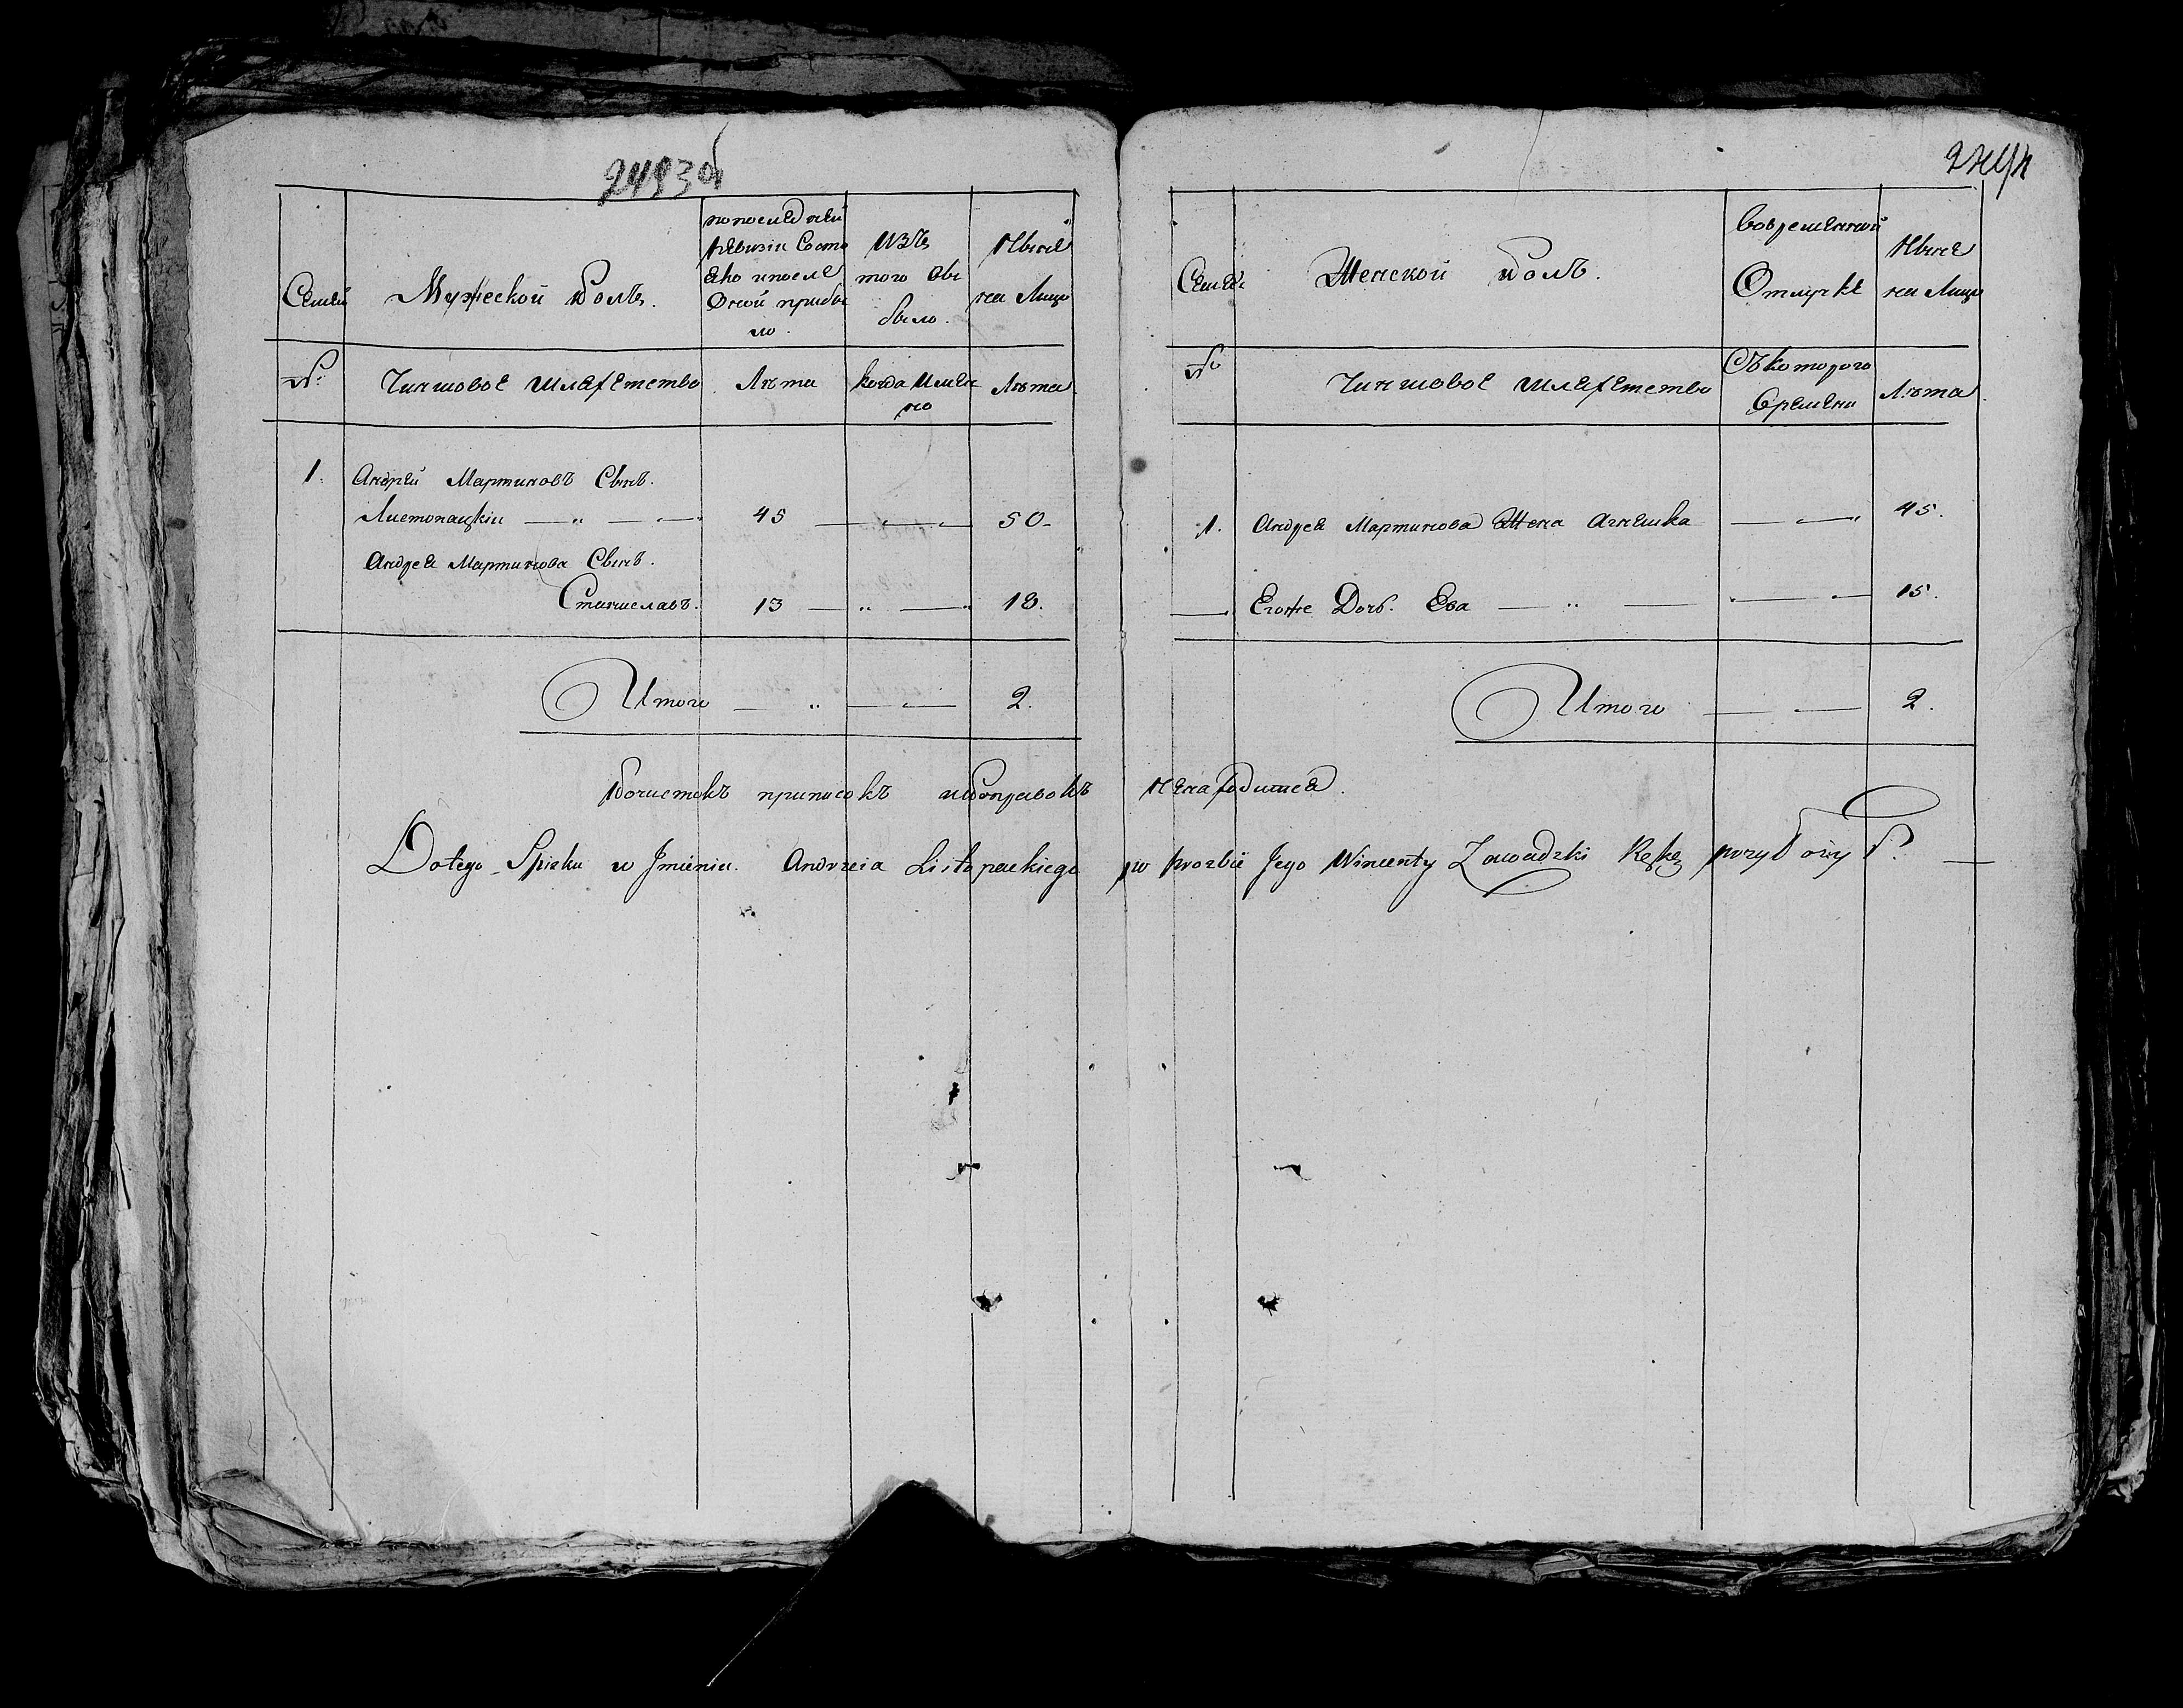 2493об
Семей
Мужеской полъ.
по последней
ревизіи Состо
яло и после
Оной прибы
ло.
ИЗЪ
того вы
было.
Ныне
на Лицо
№.
Чиншовое шляхетство
Лѣта
когда Имен
но
Лѣта.
1. Андрей Мартиновъ Сынъ.
Листопацкіи — „ — 45 — „ — 50-
Андрея Мартинова Сынъ.
Станиславъ. 13 — „ — 18.
Итого — „ — 2.
2494
Семьи
Женской полъ.
Вовременной
Отлучке
Ныне
на Лицо
№
Чиншовое шляхетство
Съкоторого
времени
Лѣта
1. Андрея Мартинова Жена Агнешка — „ 45.
— Егоже Дочь. Ева — „ — 15.
Итого — — 2.
Почистокъ приписокъ ипоправокъ ненаходится.
Dotego Spisku w Jmieniu. Andrzeia Listopackiego po prozbie Jego Wincenty Zawadzki Rękę przyłożył. —